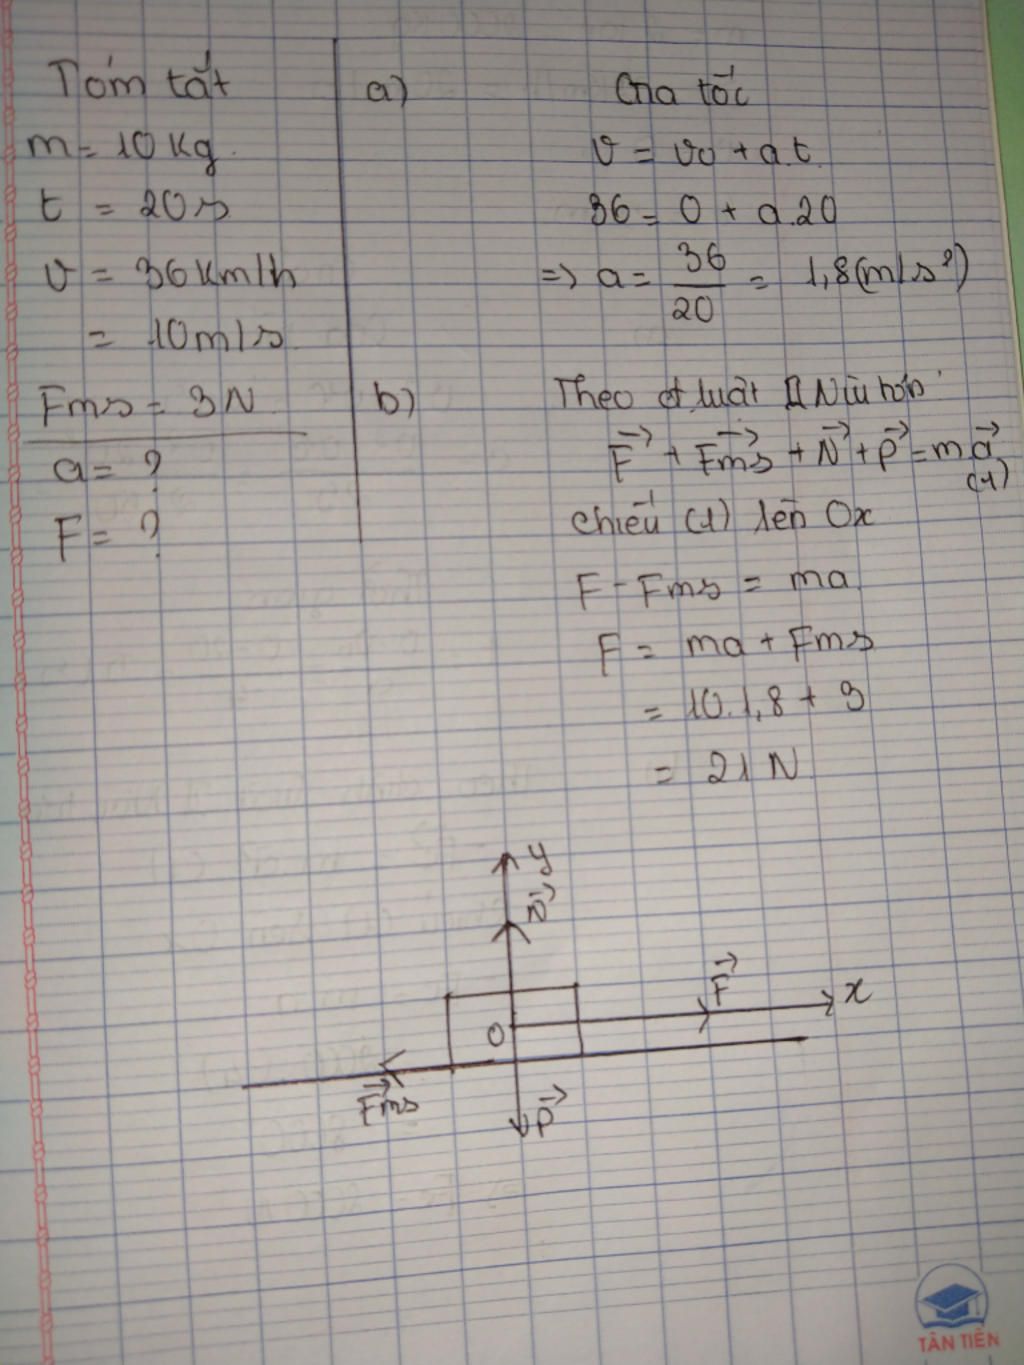 Tóm tắt
m = 10 Kg
t = 20 s
v = 36 Km/h
= 10 m/s
Fms = 3 N
a = ?
F = ?
a) Gia tốc
v = v0 + a.t
36 = 0 + a.20
=> a = 36/20 = 1,8 (m/s²)
b) Theo đ luật II Niu tơn
F→ + Fms→ + N→ + P→ = m a→ (1)
Chiếu (1) lên Ox
F - Fms = ma
F = ma + Fms
= 10.1,8 + 3
= 21 N
y
N→
F→
x
O
Fms→
P→
TÂN TIẾN